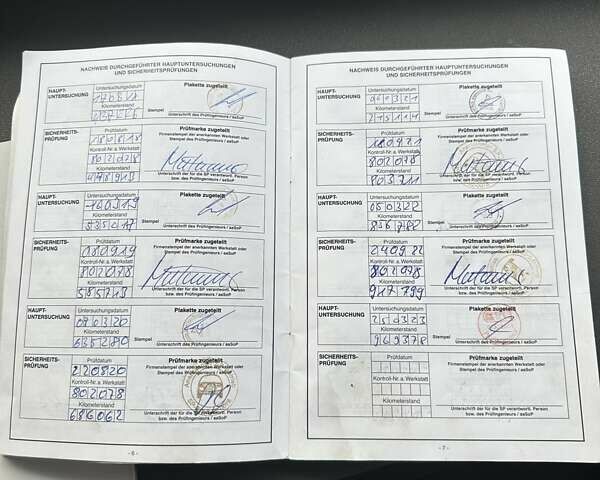 NACHWEIS DURCHGEFÜHRTER HAUPTUNTERSUCHUNGEN
UND SICHERHEITSPRÜFUNGEN
HAUPT-
UNTERSUCHUNG
Untersuchungsdatum
Kilometerstand
Stempel
Plakette zugeteilt
Unterschrift des Prüfingenieurs / aaSoP
SICHERHEITS-
PRÜFUNG
Prüfdatum
180818
Kontroll-Nr. a. Werkstatt
802078
Kilometerstand
Prüfmarke zugeteilt
Firmenstempel der anerkannten Werkstatt oder
Stempel des Prüfingenieurs / aaSoP
Unterschrift der für die SP verantwortl. Person
bzw. des Prüfingenieurs / aaSoP
HAUPT-
UNTERSUCHUNG
Untersuchungsdatum
Kilometerstand
535217
Stempel
Plakette zugeteilt
Unterschrift des Prüfingenieurs / aaSoP
SICHERHEITS-
PRÜFUNG
Prüfdatum
080919
Kontroll-Nr. a. Werkstatt
802078
Kilometerstand
Prüfmarke zugeteilt
Firmenstempel der anerkannten Werkstatt oder
Stempel des Prüfingenieurs / aaSoP
Unterschrift der für die SP verantwortl. Person
bzw. des Prüfingenieurs / aaSoP
HAUPT-
UNTERSUCHUNG
Untersuchungsdatum
090320
Kilometerstand
635280
Stempel
Plakette zugeteilt
Unterschrift des Prüfingenieurs / aaSoP
SICHERHEITS-
PRÜFUNG
Prüfdatum
220820
Kontroll-Nr. a. Werkstatt
802078
Kilometerstand
686062
Prüfmarke zugeteilt
Firmenstempel der anerkannten Werkstatt oder
Stempel des Prüfingenieurs / aaSoP
Unterschrift der für die SP verantwortl. Person
bzw. des Prüfingenieurs / aaSoP
- 6 -
NACHWEIS DURCHGEFÜHRTER HAUPTUNTERSUCHUNGEN
UND SICHERHEITSPRÜFUNGEN
HAUPT-
UNTERSUCHUNG
Untersuchungsdatum
Kilometerstand
Stempel
Plakette zugeteilt
Unterschrift des Prüfingenieurs / aaSoP
SICHERHEITS-
PRÜFUNG
Prüfdatum
Kontroll-Nr. a. Werkstatt
802078
Kilometerstand
Prüfmarke zugeteilt
Firmenstempel der anerkannten Werkstatt oder
Stempel des Prüfingenieurs / aaSoP
Unterschrift der für die SP verantwortl. Person
bzw. des Prüfingenieurs / aaSoP
HAUPT-
UNTERSUCHUNG
Untersuchungsdatum
050322
Kilometerstand
Stempel
Plakette zugeteilt
Unterschrift des Prüfingenieurs / aaSoP
SICHERHEITS-
PRÜFUNG
Prüfdatum
240922
Kontroll-Nr. a. Werkstatt
802078
Kilometerstand
927799
Prüfmarke zugeteilt
Firmenstempel der anerkannten Werkstatt oder
Stempel des Prüfingenieurs / aaSoP
Unterschrift der für die SP verantwortl. Person
bzw. des Prüfingenieurs / aaSoP
HAUPT-
UNTERSUCHUNG
Untersuchungsdatum
250323
Kilometerstand
969378
Stempel
Plakette zugeteilt
Unterschrift des Prüfingenieurs / aaSoP
SICHERHEITS-
PRÜFUNG
Prüfdatum
Kontroll-Nr. a. Werkstatt
Kilometerstand
Prüfmarke zugeteilt
Firmenstempel der anerkannten Werkstatt oder
Stempel des Prüfingenieurs / aaSoP
Unterschrift der für die SP verantwortl. Person
bzw. des Prüfingenieurs / aaSoP
- 7 -